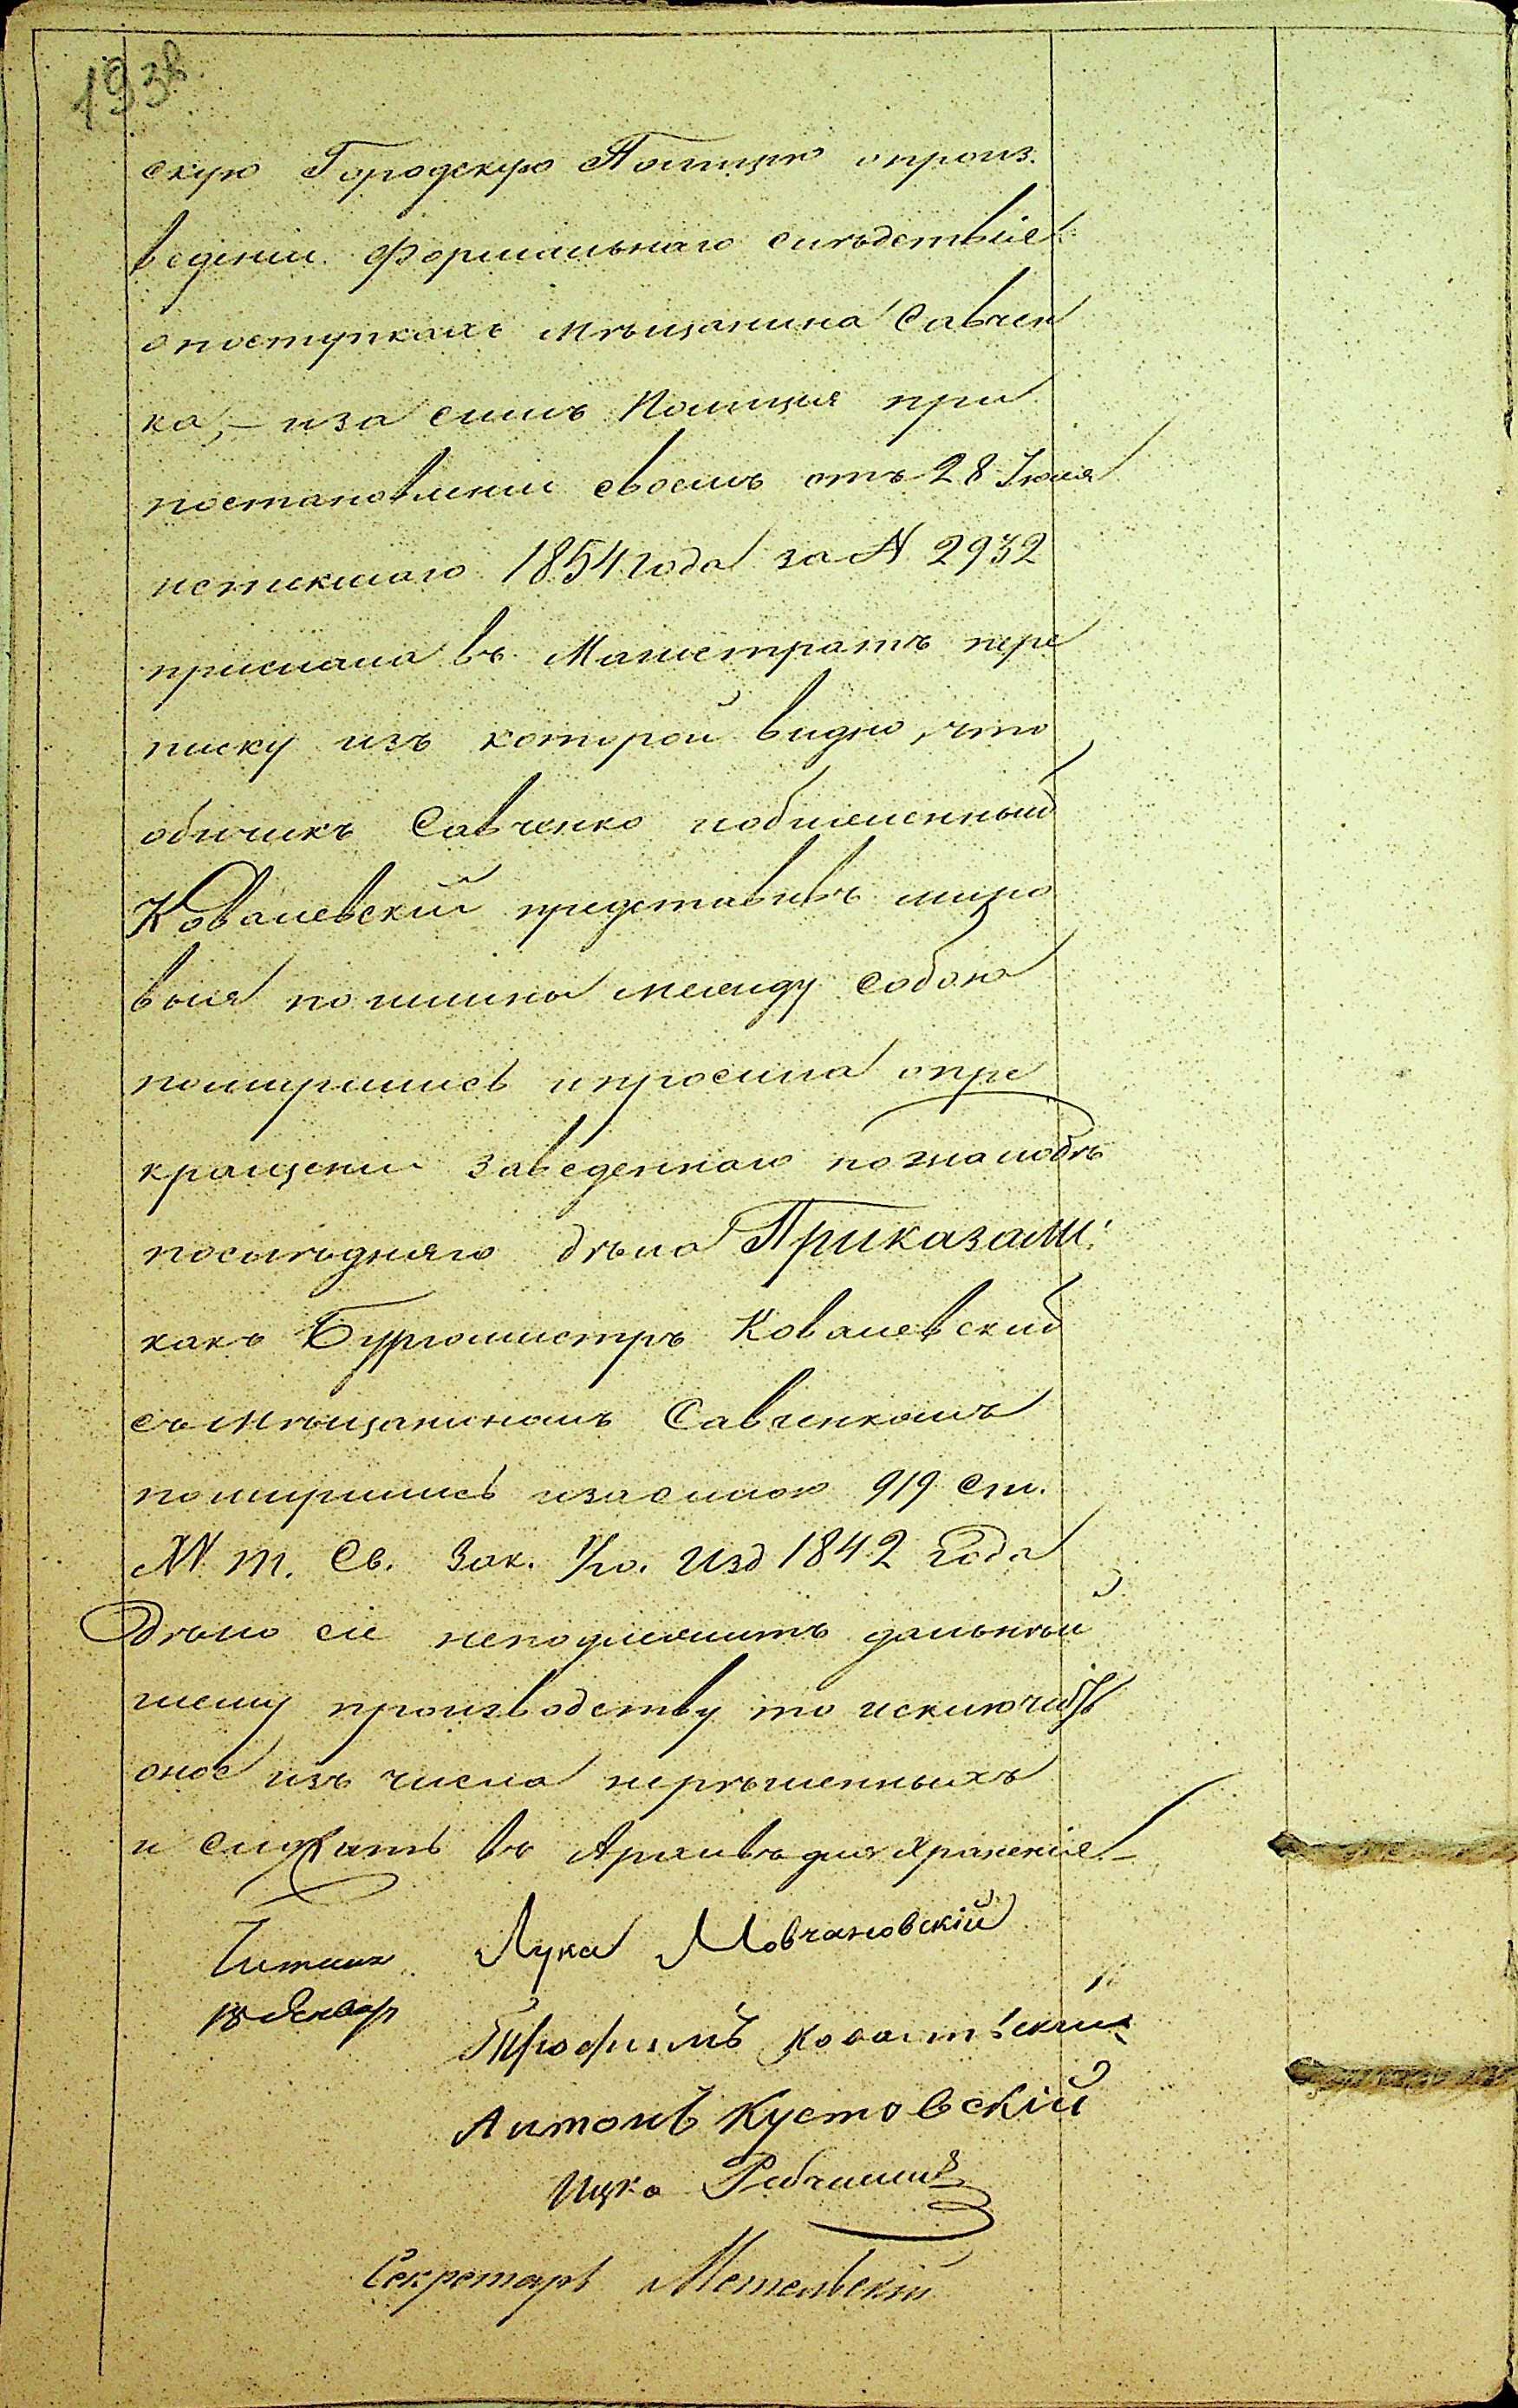 скую Городскую Полицiю опроиз.
веденiи формальнаго слѣдствiя
опоступкахъ мѣщанина Савчен
ка, — иза симъ Полицiя при
постановленiи своемъ отъ 28 Iюля
истекшаго 1854 года за № 2932
прислала въ Магистратъ пере
писку изъ которой видно, что
обидчикъ Савченко иобиженный
Ковалевскiй представивъ миро
выя пошлины между собою
помирились ипросили опре
кращенiи заведеннаго пожалобѣ
послѣдняго дѣла Приказали:
какъ Бургомистръ Ковалевскiй
съ мѣщаниномъ Савченкомъ
помирились изасилою 919 ст.
XV т. Св. Зак. Уго. Изд 1842 Года
дѣло сiе неподлежитъ дальнѣй
шему производству то исключить
оное изъ числа нерѣшенныхъ
и сдать въ Архивъ для храненiя —
Читалъ Лука Мовчановскiй
18 Январ
Трофимъ Ковалевскiй
Антонъ Кустовскiй
Ицко
Секретарь Метельскiй